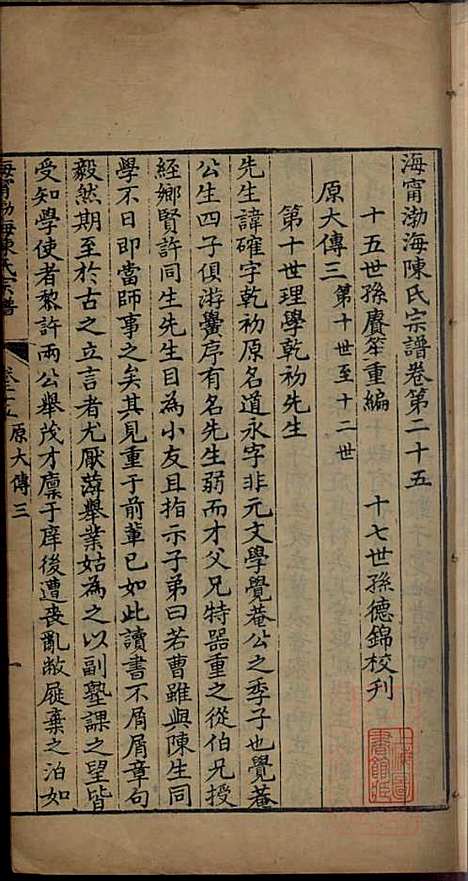 海甯渤海陳氏宗譜卷第二十五
十五世孫賡笙重編　十七世孫德錦校刊
原大傳三 第十世至十二世
第十世理學乾初先生
先生諱確字乾初原名道永字非元文學覺菴公之季子也覺菴
公生四子俱游黌序有名先生弱而才父兄特器重之從伯兄授
經鄉賢許同生先生目為小友且指示子弟曰若曹雖與陳生同
學不日即當師事之矣其見重于前輩已如此讀書不屑屑章句
毅然期至於古之立言者尤厭薄舉業姑為之以副塾課之望皆
受知學使者黎許兩公舉茂才廩于庠後遭喪亂敝屣棄之泊如
海甯渤海陳氏宗譜
卷二十五
原大傳三
一